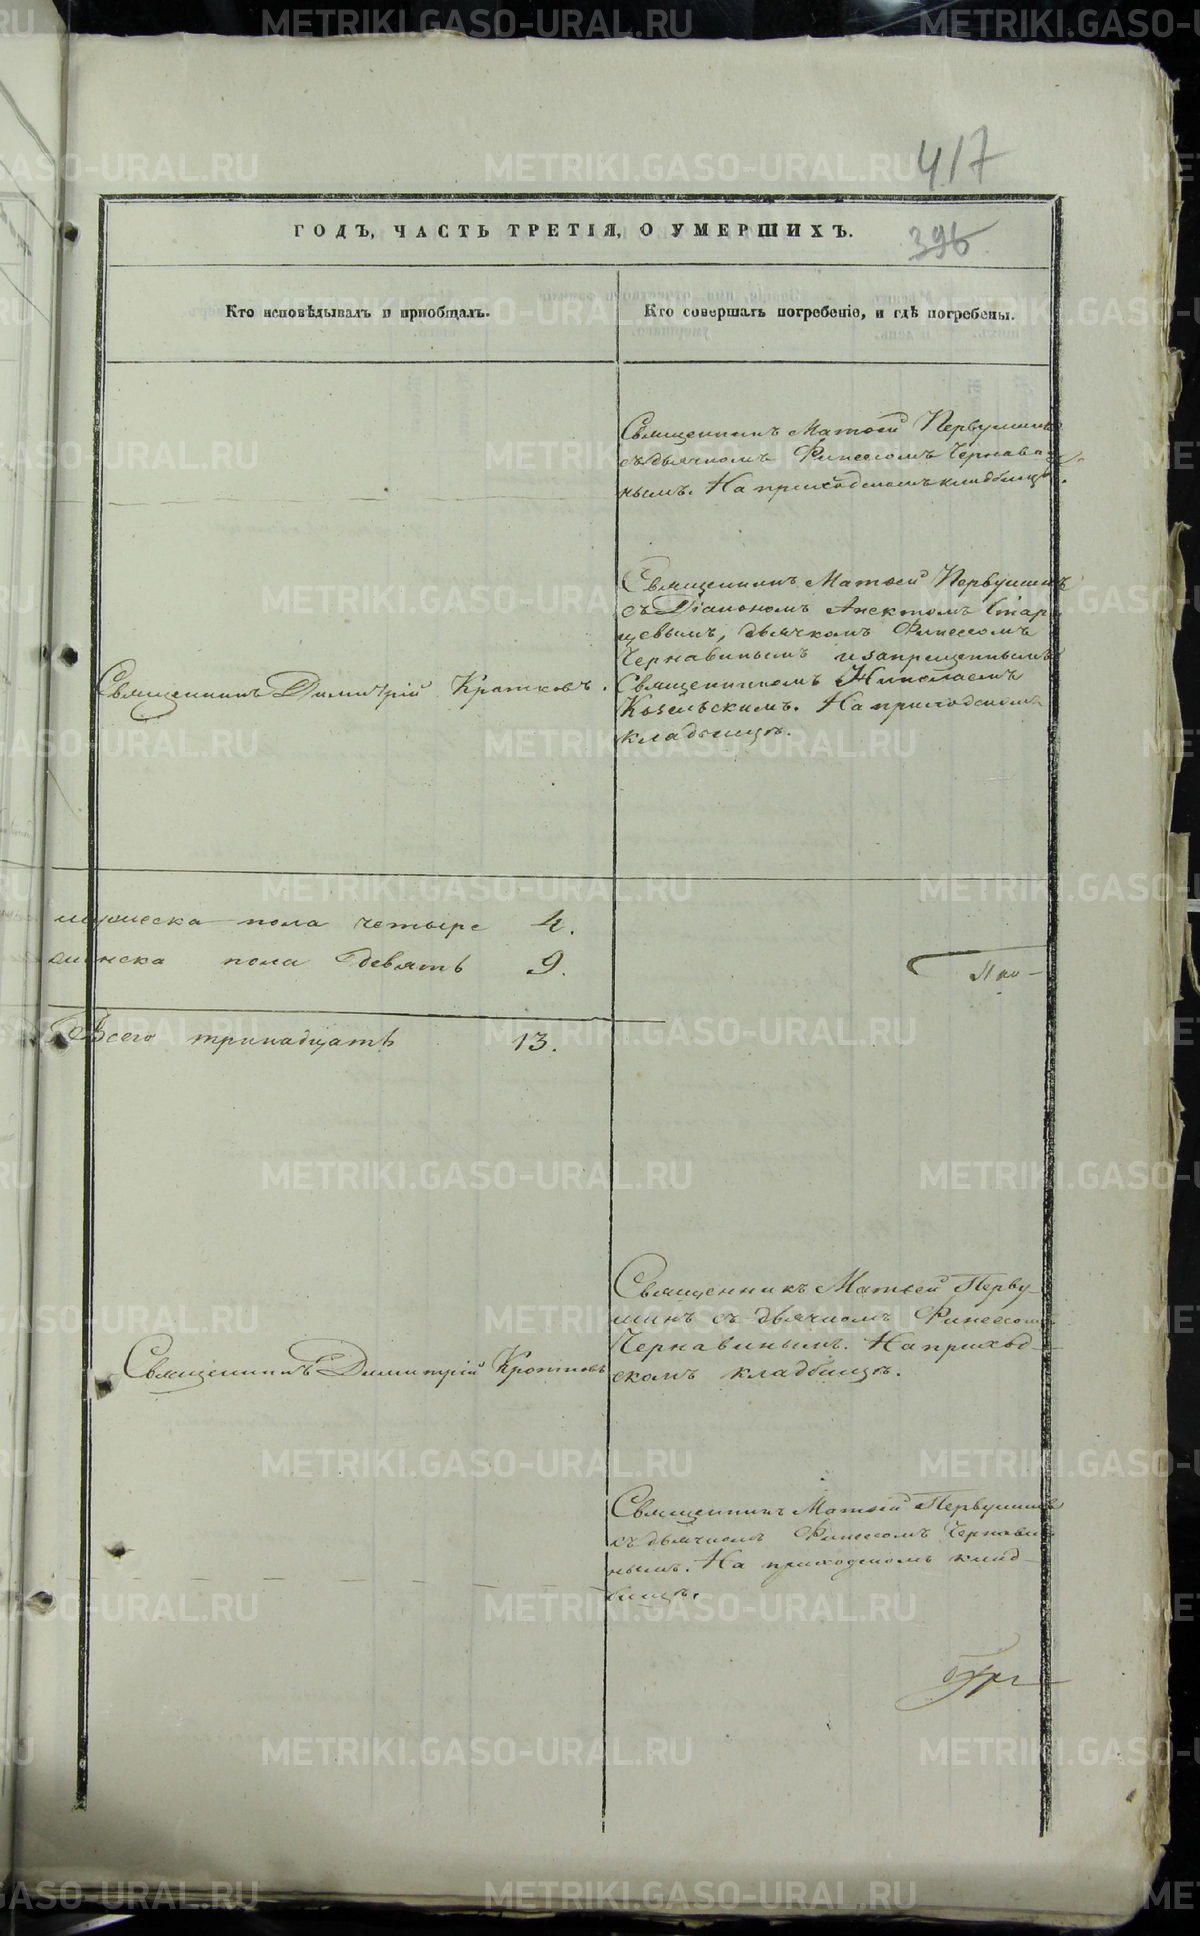 417
ГОДЪ, ЧАСТЬ ТРЕТІЯ, О УМЕРШИХЪ.
396
Кто исповѣдывалъ и пріобщалъ.
Кто совершалъ погребеніе, и гдѣ погребены.
Священникъ Матѳей Первушинъ
съ дьячкомъ Финеесомъ Чернави-
нымъ. На приходскомъ кладбищѣ.
Священникъ Димитрій Кротковъ.
Священникъ Матѳей Первушинъ
съ Діакономъ Старцевымъ, дьячкомъ Финеесомъ
Чернавинымъ и запрещеннымъ
Священникомъ Николаемъ
Козельскимъ. На приходскомъ
кладбищѣ.
мужеска пола четыре 4.
женска пола девять 9.
Всего тринадцать 13.
Священникъ Димитрій Кротковъ
Священникъ Матѳей Перву-
шинъ съ дьячкомъ Финеесомъ
Чернавинымъ. На приход-
скомъ кладбищѣ.
Священникъ Матѳей Первушинъ
съ дьячкомъ Финеесомъ Чернави-
нымъ. На приходскомъ клад-
бищѣ.
METRIKI.GASO-URAL.RU